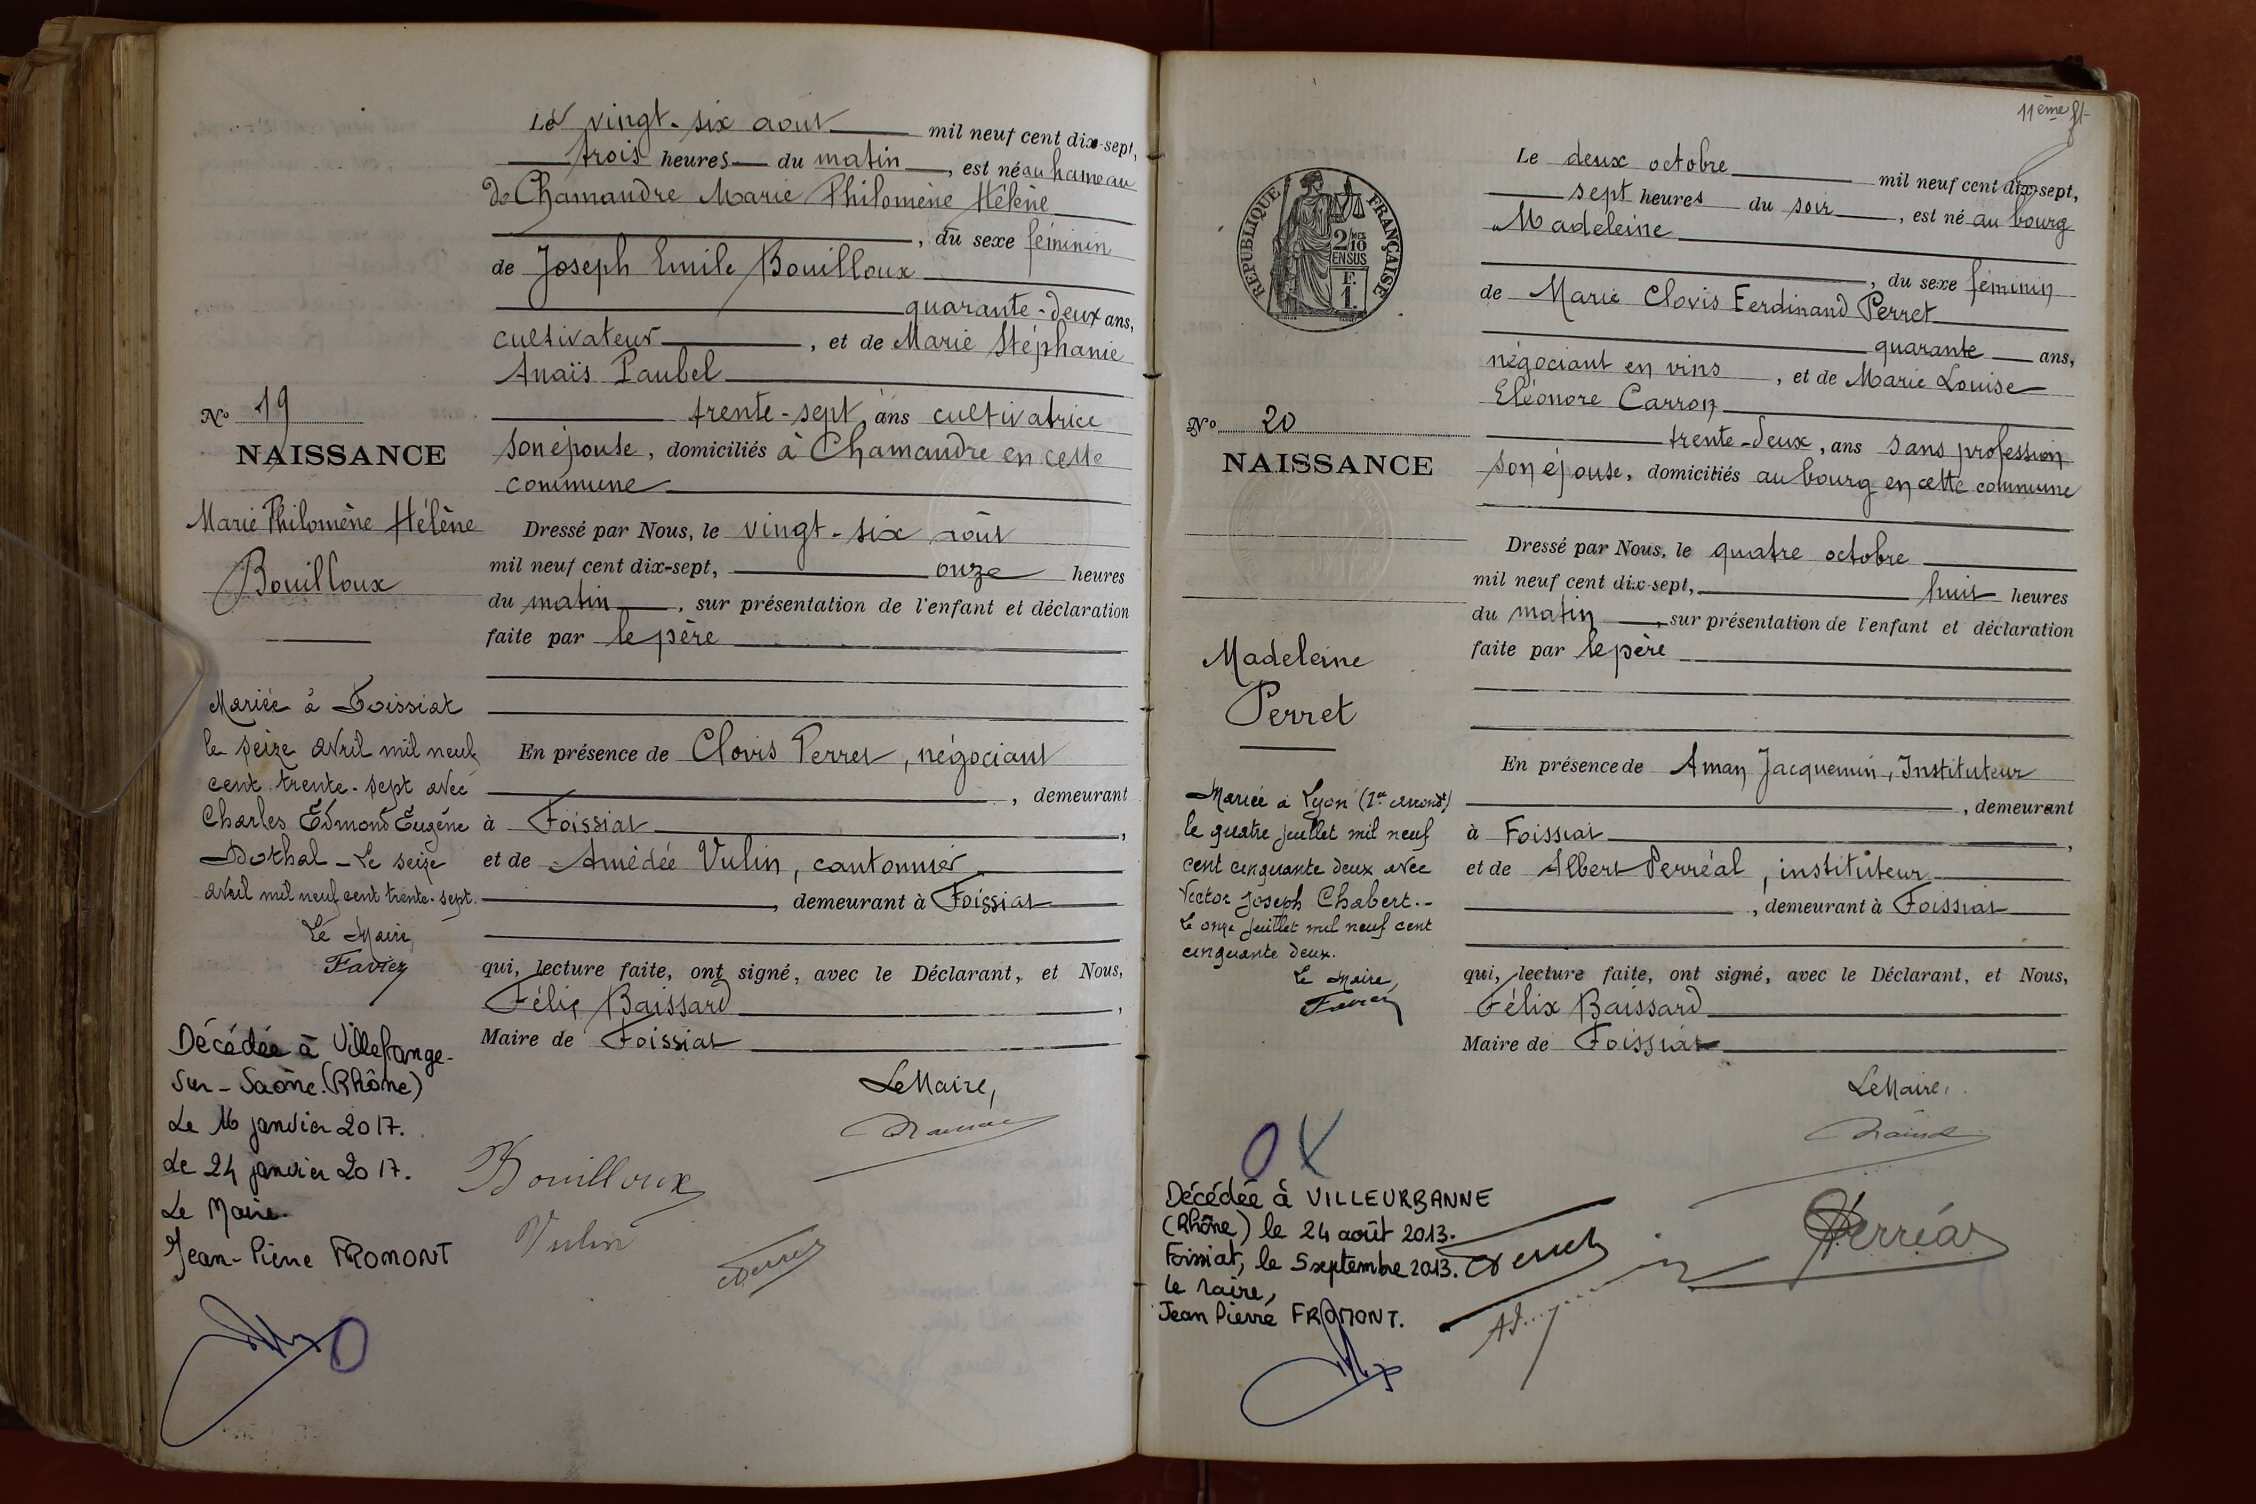 Le vingt-six août mil neuf cent dix-sept,
trois heures du matin, est né au hameau
de Chamandre Marie Philomène Hélène
, du sexe féminin
de Joseph Emile Bouilloux
quarante-deux ans,
cultivateur, et de Marie Stéphanie
Anaïs Paubel
trente-sept ans cultivatrice
son épouse, domiciliés à Chamandre en cette
commune
No 19
NAISSANCE
Marie Philomène Hélène
Bouilloux
Dressé par Nous, le vingt-six août
mil neuf cent dix-sept, onze heures
du matin, sur présentation de l'enfant et déclaration
faite par le père
En présence de Clovis Perret, négociant
, demeurant
à Foissiat,
et de Amédée Vulin, cantonnier
, demeurant à Foissiat
qui, lecture faite, ont signé, avec le Déclarant, et Nous,
Félix Baissard,
Maire de Foissiat
Le Maire,
Bouilloux
Vulin
Perret
Mariée à Foissiat
le seize avril mil neuf
cent trente-sept avec
Charles Edmond Eugène
Dothal - Le seize
avril mil neuf cent trente-sept.
Le Maire,
Favier
Décédée à Villefrange-
Sur-Saône (Rhône)
Le 16 janvier 2017.
Le 24 janvier 2017.
Le Maire.
Jean-Pierre FROMONT
11ème ft
REPUBLIQUE FRANÇAISE
2/10
EN SUS
F.
1.
Le deux octobre mil neuf cent dix-sept,
sept heures du soir, est né au bourg
Madeleine
, du sexe féminin
de Marie Clovis Ferdinand Perret
quarante ans,
négociant en vins, et de Marie Louise
Eléonore Carron
trente-deux, ans sans profession
son épouse, domiciliés au bourg en cette commune
No 20
NAISSANCE
Madeleine
Perret
Dressé par Nous, le quatre octobre
mil neuf cent dix-sept, huit heures
du matin, sur présentation de l'enfant et déclaration
faite par le père
En présence de Aman Jacquemin, Instituteur
, demeurant
à Foissiat,
et de Albert Perréal, instituteur
, demeurant à Foissiat
qui, lecture faite, ont signé, avec le Déclarant, et Nous,
Félix Baissard
Maire de Foissiat
Le Maire,
Perret
Perréal
Mariée à Lyon (1er arrondt)
le quatre juillet mil neuf
cent cinquante deux avec
Victor Joseph Chabert.-
Le onze juillet mil neuf cent
cinquante deux.
Le Maire,
Favier
Décédée à VILLEURBANNE
(Rhône) le 24 août 2013.
Foissiat, le 5 septembre 2013.
Le Maire,
Jean Pierre FROMONT.